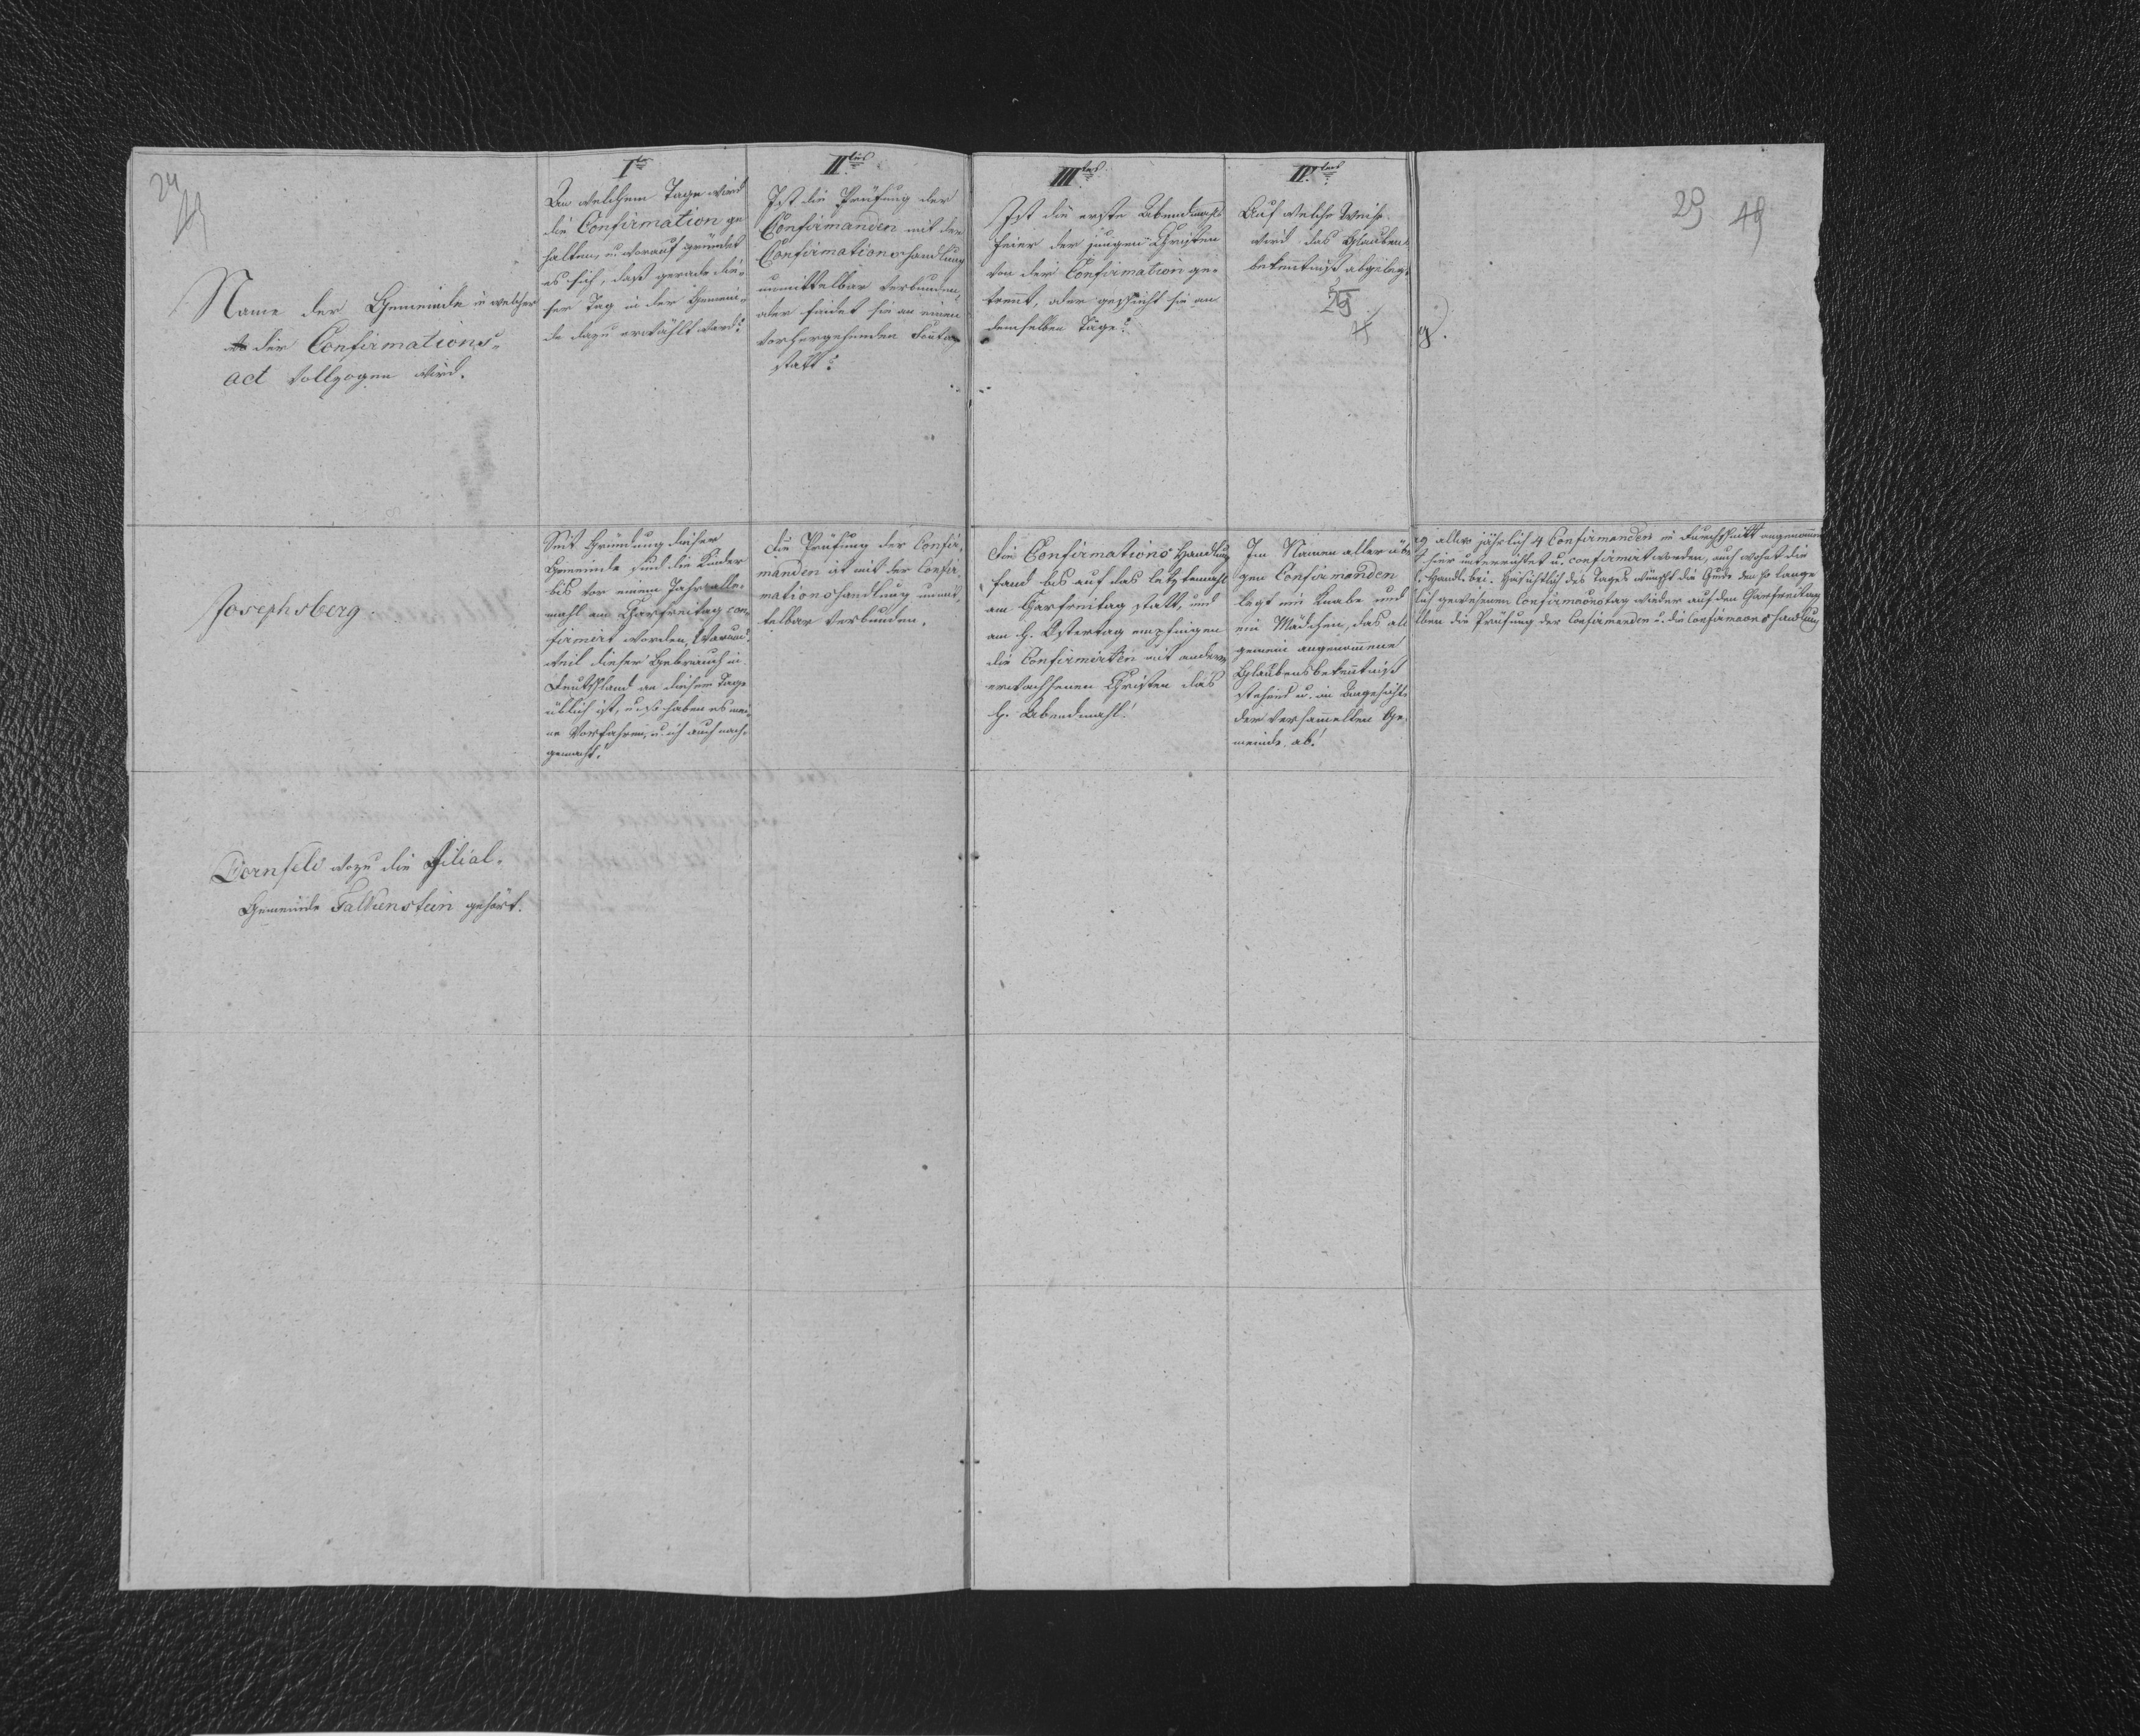 24
Name der Gemeinde in welcher
der Confirmations-
act vollzogen wird.
I tes
An welchem Tage wird
die Confirmation ge
halten, u. worauf gründet
es sich, daß gerade die-
ser Tag in der Gemein-
de dazu erwählt wird?
II tes
Ist die Prüfung der
Confirmanden mit der
Confirmationshandlung
unmittelbar verbunden,
oder findet sie an einem
vorhergehenden
statt?
III tes
Ist die erste Abendmahls
feier der jungen Christen
von der Confirmation ge-
trennt, oder geschieht sie an
demselben Tage?
IV tes
Auf welche Weise
wird das Glaubens
bekenntniß abgelegt
29
29 49
g.
Josephsberg.
Seit Gründung dieser
Gemeinde sind die Kinder
bis vor einem Jahr alle-
mahl am Charfreitag con-
firmirt worden, Warum?
weil dieser Gebrauch in
Deutschland an diesem Tage
üblich ist, u. so haben es mei-
ne Vorfahren, u. ich auch nach-
gemacht.
Die Prüfung der Confir-
manden ist mit der Confir-
mationshandlung unmit-
telbar verbunden.
Die Confirmations Handlung
fand bis auf das letztemahl
am Charfreitag statt, und
am H. Ostertag empfingen
die Confirmirten mit andern
erwachsenen Christen das
h. Abendmahl!
Im Namen aller übri
gen Confirmanden
legt ein Knabe und
ein Mädchen, das all
gemein angenommene
Glaubensbekenntniß
stehend u. im Angesicht
der versammelten Ge-
meinde ab!
alle jährlich 4 Confirmanden im Durchschnitt angenommen
hier unterrichtet u. confirmirt worden, auch wohnt die
Handl. bei. Hinsichtlich des Tages wünscht die Gmde den so lange
lich gewesenen Confirmaonstag wieder auf den Charfreitag
lben die Prüfung der Confirmanden u. die Confirmaonshandlung
Dornfeld wozu die Filial-
Gemeinde Falkenstein gehört.